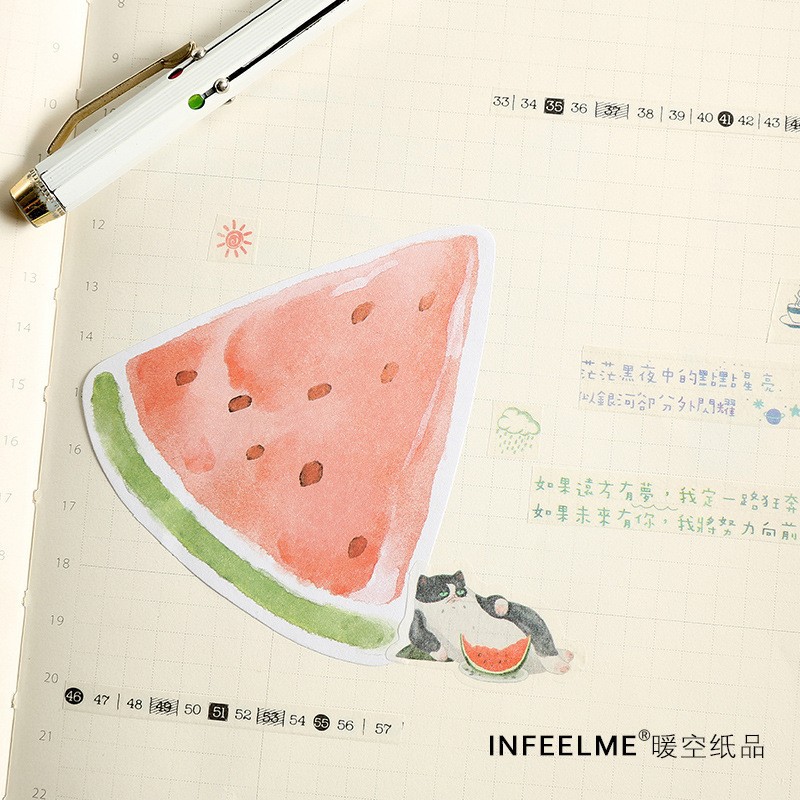 8
9
10
10
11
12
13
14
15
16
17
18
19
20
21
22
13
14
15
16
17
18
19
20
21
22
33 34 35 36 37 38 39 40 41 42 43
茫茫黑夜中的點點星亮
似銀河卻分外閃耀
如果遠方有夢，我定一路狂奔
如果未來有你，我將努力向前
46 47 48 49 50 51 52 53 54 55 56 57
INFEELME®暖空纸品